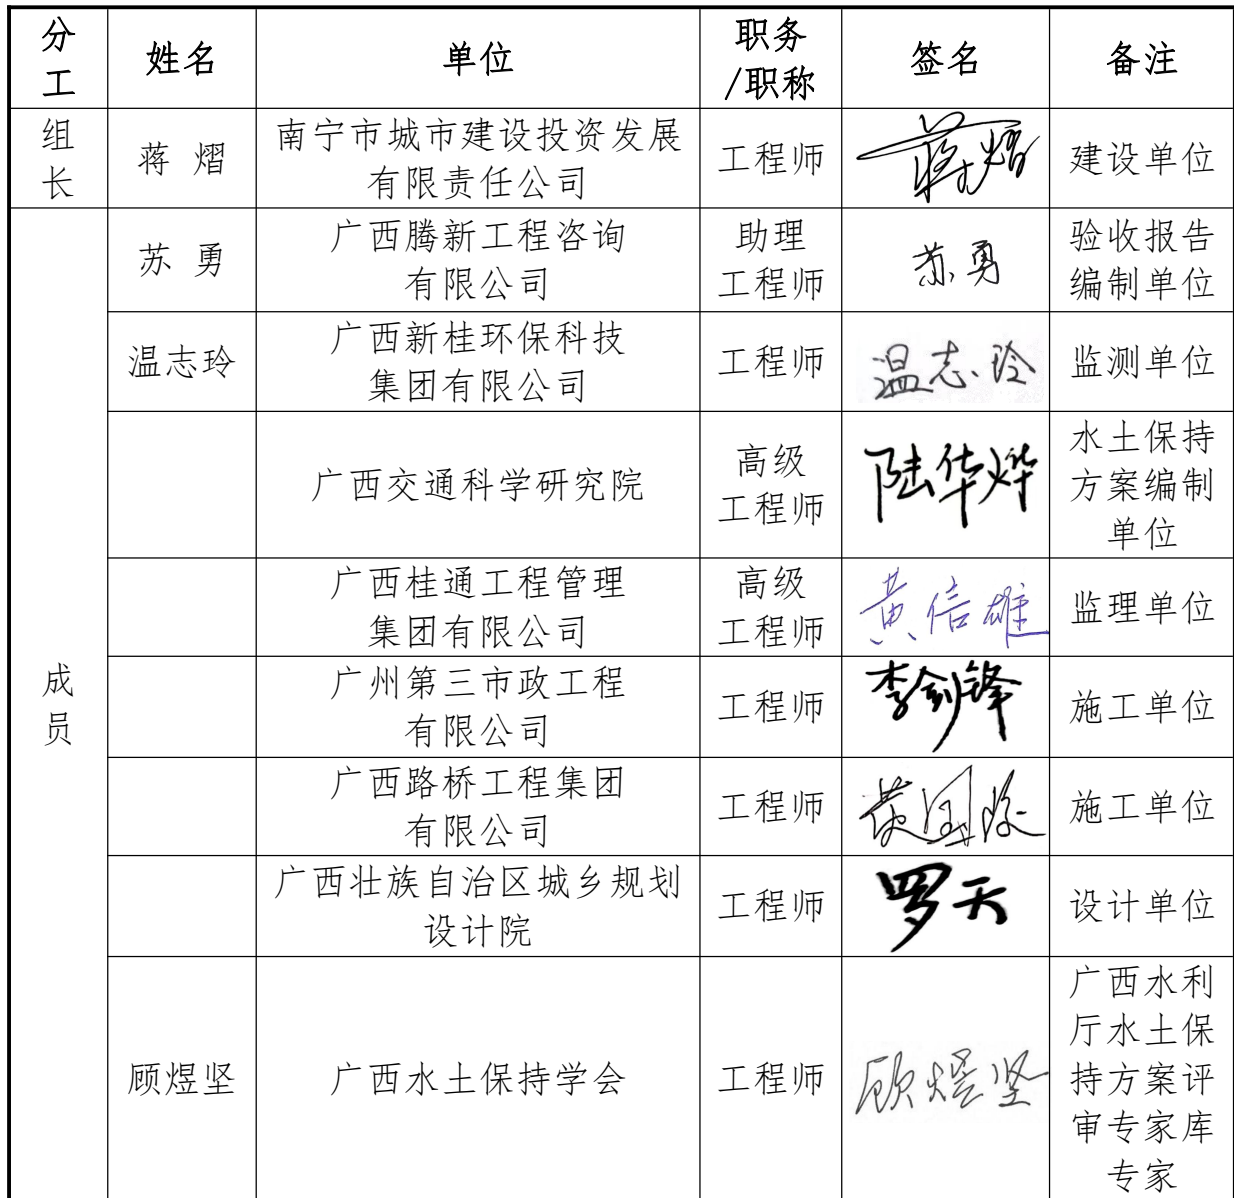 分工 姓名 单位 职务/职称 签名 备注
组长 蒋 熠 南宁市城市建设投资发展有限责任公司 工程师 蒋熠 建设单位
成员
苏 勇 广西腾新工程咨询有限公司 助理工程师 苏勇 验收报告编制单位
温志玲 广西新桂环保科技集团有限公司 工程师 温志玲 监测单位
广西交通科学研究院 高级工程师 陆华烨 水土保持方案编制单位
广西桂通工程管理集团有限公司 高级工程师 黄信雄 监理单位
广州第三市政工程有限公司 工程师 李剑锋 施工单位
广西路桥工程集团有限公司 工程师 施工单位
广西壮族自治区城乡规划设计院 工程师 罗天 设计单位
顾煜坚 广西水土保持学会 工程师 顾煜坚 广西水利厅水土保持方案评审专家库专家